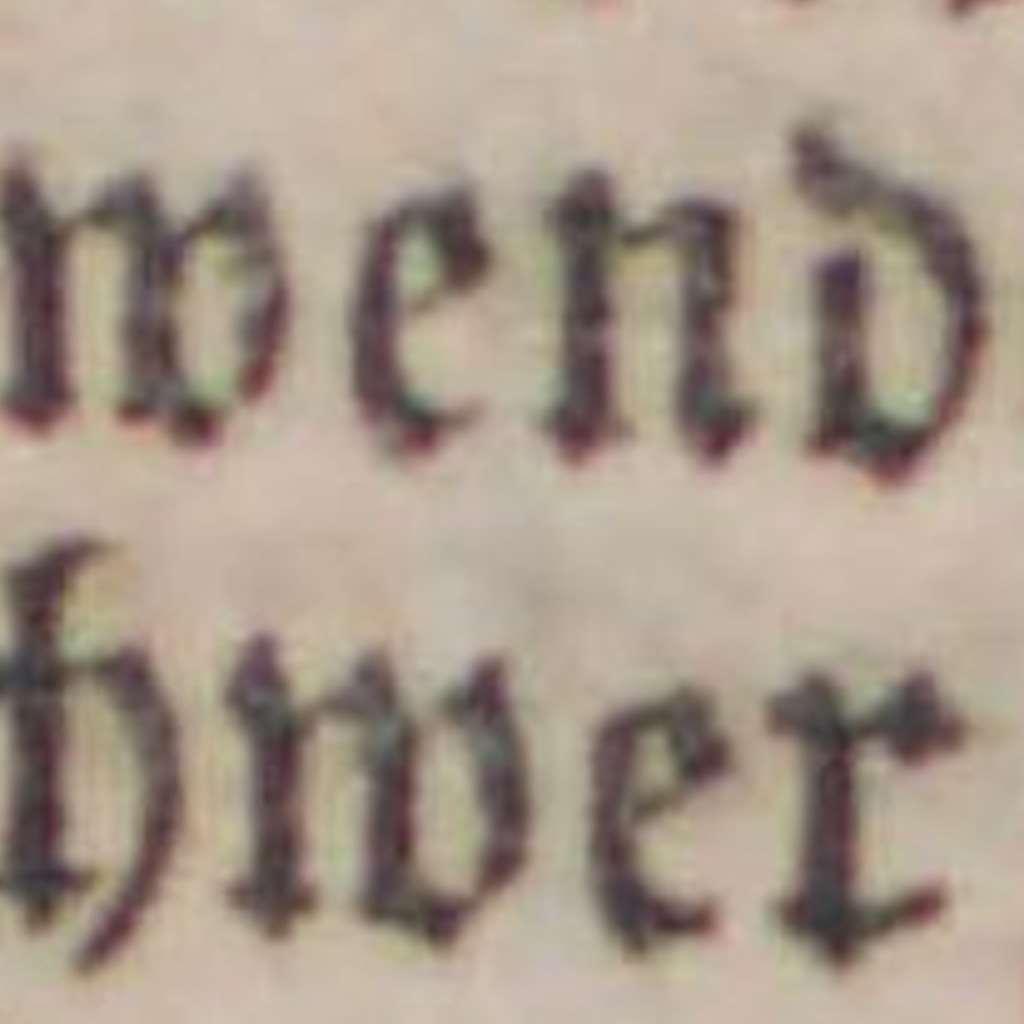 wend
hwer